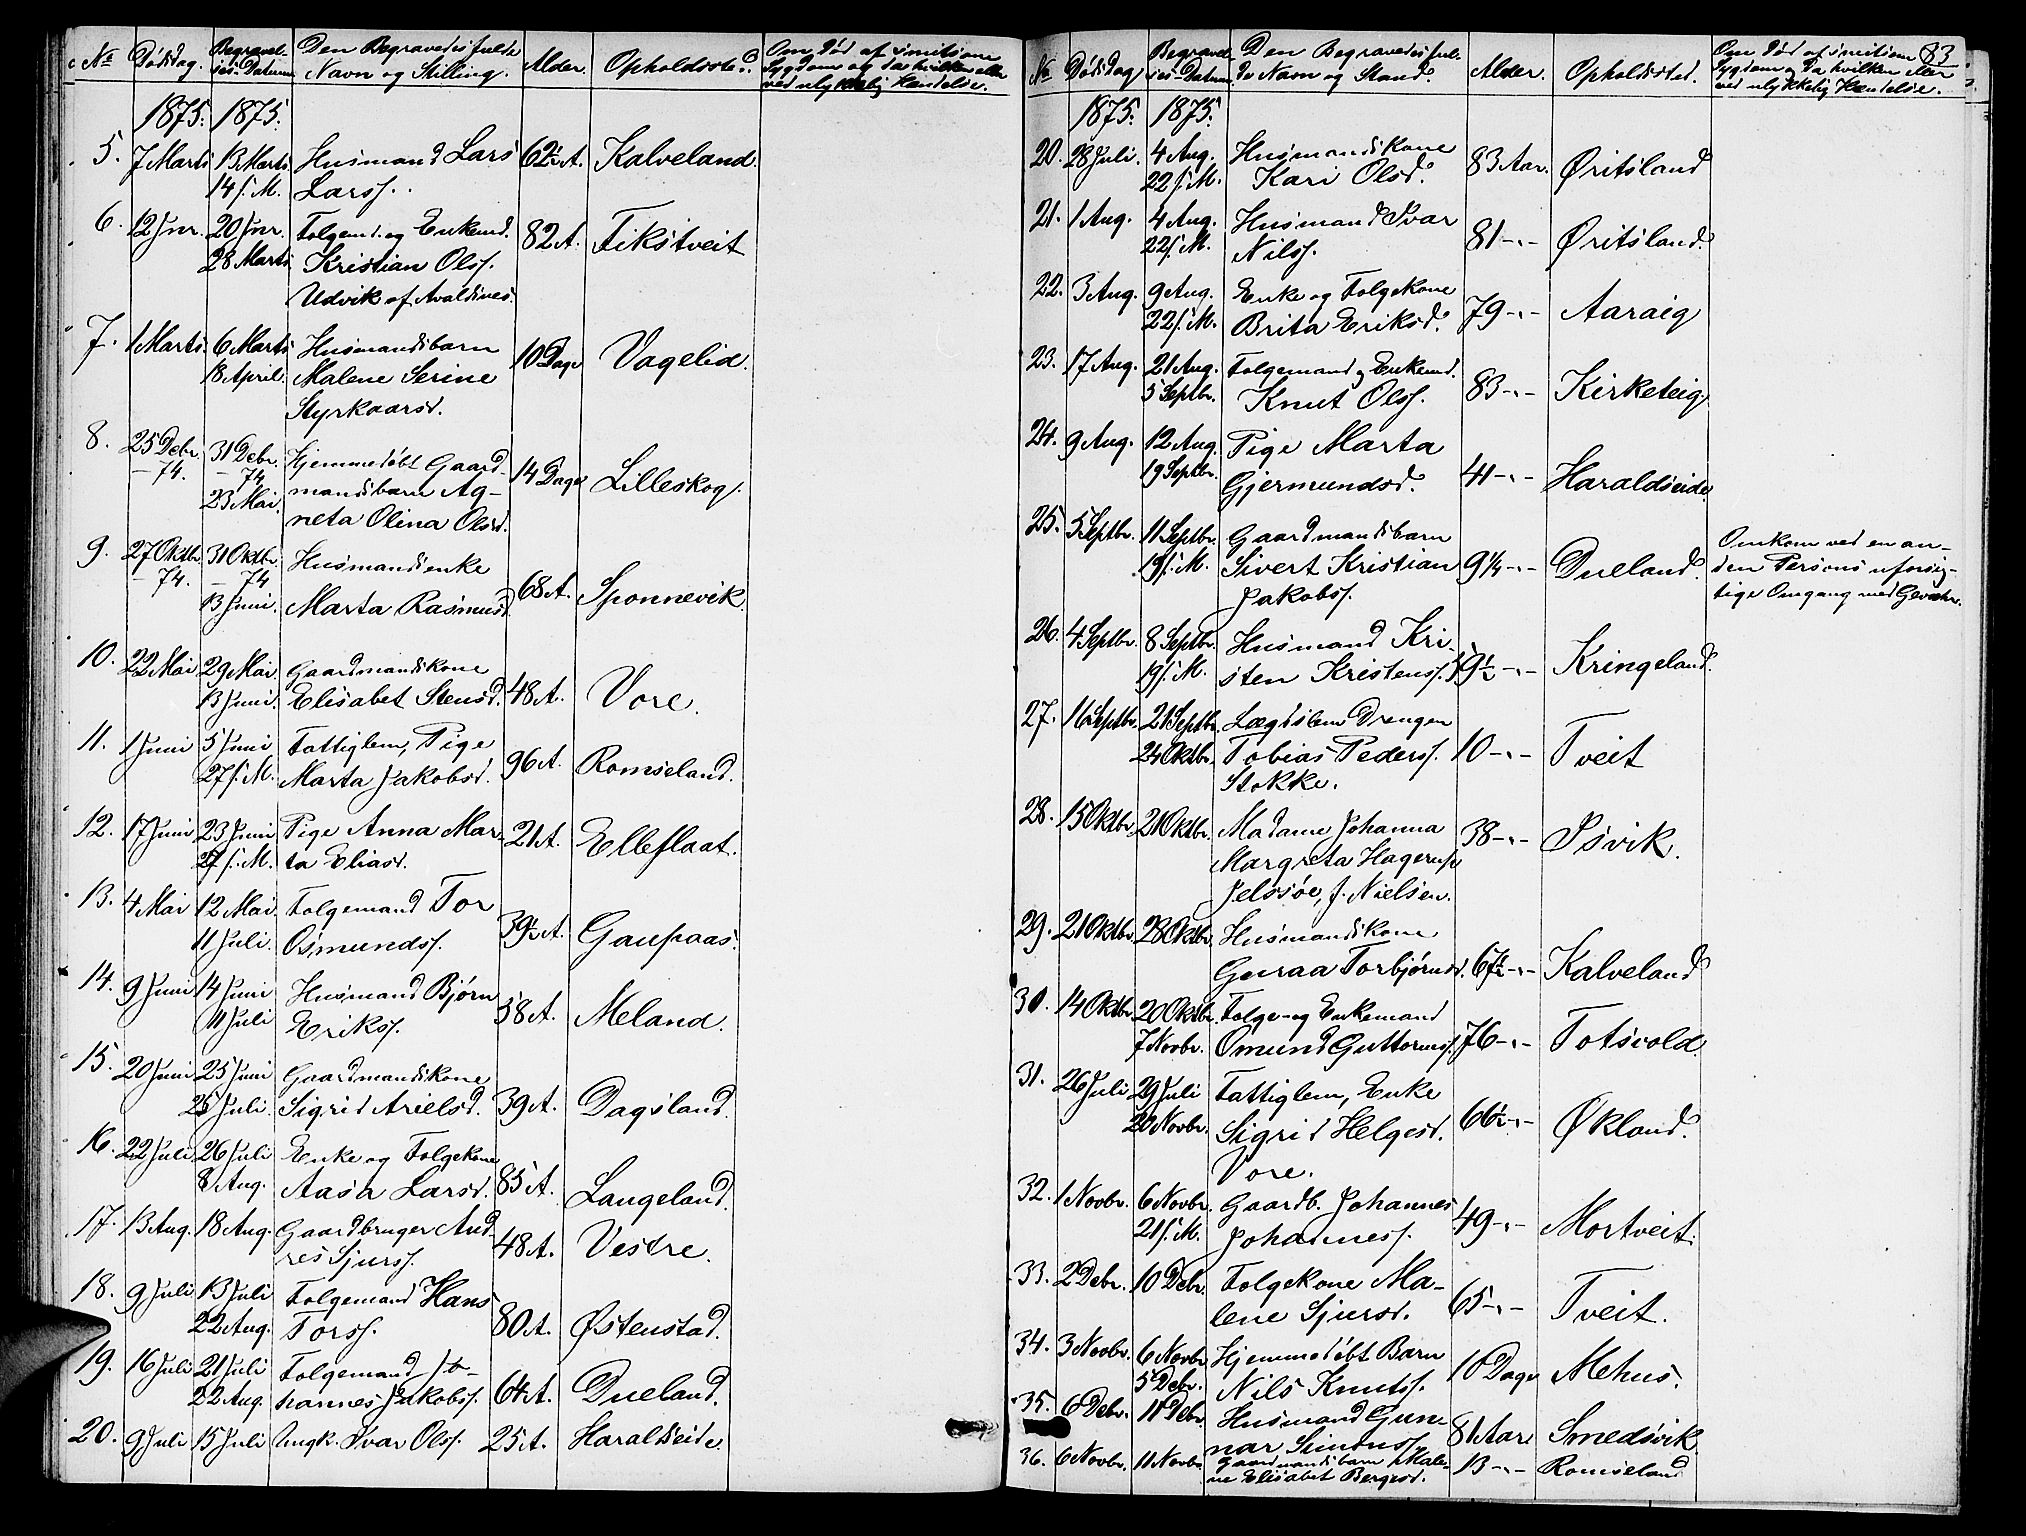 No Dødsdag. Begravel- Den Begravedes fulde Alder. Opholdssted. Om Død af smitsom
ses-Datum Navn og Stilling. Sygdom og da hvilken eller
ved ulykkelig Hændelse.
1875. 1875.
5. 7 Marts 13 Marts Husmand Lars 62½A. Kalveland.
14 s. M. Larss.
6. 12 Jnr. 20 Jnr. Folgemd. og Enkemd. 82 A. Fikstveit
28 Marts Kristian Olss.
Udvik af Avaldsnes.
7. 1 Marts 6 Marts Husmandsbarn 10 Dage Vagelid.
18 April. Malene Serine
Styrkaarsd.
8. 25 Debr. 31 Debr. Hjemmedøbt Gaard- 14 Dage Lilleskog.
–74. –74 mandsbarn Ag-
23 Mai. neta Olina Olsd.
9. 27 Oktbr. 31 Oktbr. Husmandsenke 68 A. Sponnevik.
–74. –74
13 Juni. Marta Rasmusd.
10. 22 Mai 29 Mai Gaardmandskone 48 A. Vore.
13 Juni. Elisabet Stensd.
11. 1 Juni 5 Juni Fattiglem, Pige 96 A. Romseland.
27 s. M. Marta Jakobsd.
12. 17 Juni 23 Juni Pige Anna Mar- 21 A. Elleflaat.
27 s. M. ta Eliasd.
13. 4 Mai 12 Mai. Folgemand Tor 39½A. Gaupaas.
11 Juli. Osmundss.
14. 9 Juni 14 Juni Husmand Bjørn 58 A. Meland.
11 Juli Erikss.
15. 20 Juni 25 Juni Gaardmandskone 39 A. Dagsland.
25 Juli. Sigrid Arielsd.
16. 22 Juli 26 Juli Enke og Folgekone 85 A. Langeland.
8 Aug. Aasa Larsd.
17. 13 Aug. 18 Aug. Gaardbruger And- 48 A. Vestre.
res Sjurss.
18. 9 Juli 13 Juli Folgemand Hans 80 A. Østenstad.
22 Aug. Torss.
19. 16 Juli 21 Juli Folgemand Jo- 64 A. Dueland.
22 Aug. hannes Jakobss.
20. 9 Juli 15 Juli Ungk. Ivar Olss. 25 A. Haraldseide.
83
No Dødsdag Begravel- Den Begravedes ful- Alder. Opholdssted. Om Død af smitsom
ses-Datum de Navn og Stand. Sygdom og da hvilken eller
ved ulykkelig Hændelse.
1875. 1875.
20. 28 Juli. 4 Aug. Husmandskone 83 Aar. Øritsland
22 s. M. Kari Olsd.
21. 1 Aug. 4 Aug. Husmand Ivar 81 –"– Øritsland.
22 s. M. Nilss.
22. 3 Aug. 9 Aug. Enke og Folgekone 79 –"– Aaraig
22 s. M. Brita Eriksd.
23. 17 Aug. 21 Aug. Folgemand og Enkemd. 83 –"– Kirketeig
5 Septbr. Knut Olss.
24. 9 Aug. 12 Aug. Pige Marta 41 –"– Haraldseide
19 Septbr. Gjermundsd.
25. 5 Septbr. 11 Septbr. Gaardmandsbarn 9¼ –"– Dueland. Omkom ved en an-
19 s. M. Sivert Kristian den Persons uforsig-
Jakobss. tige Omgang med Gevær.
26. 4 Septbr. 8 Septbr. Husmand Kri- 59½ –"– Kringeland.
19 s. M. sten Kristenss.
27. 16 Septbr. 21 Septbr. Lægdslem Drengen 10 –"– Tveit
24 Oktbr. Tobias Pederss.
Stokke.
28. 15 Oktbr. 21 Oktbr. Madame Johanna 38 –"– Isvik.
Margreta Hagerup
Jelssøe, f. Nielsen.
29. 21 Oktbr. 28 Oktbr. Husmandskone
Guraa Torbjørnsd. 67½ –"– Kalveland
30. 14 Oktbr. 20 Oktbr. Folge- og Enkemand
7 Novbr. Omund Guttormss. 76 –"– Totsvold.
31. 26 Juli 29 Juli Fattiglem, Enke 66½ –"– Økland.
20 Novbr. Sigrid Helgesd.
Vore.
32. 1 Novbr. 6 Novbr. Gaardb. Johannes 49 –"– Mortveit.
21 s. M. Johanness.
33. 2 Debr. 10 Debr. Folgekone Ma- 65 –"– Tveit.
lene Sjursd.
34. 3 Novbr. 6 Novbr. Hjemmedøbt Barn 10 Dage Mehus.
5 Debr. Nils Knutss.
35. 6 Debr. 11 Debr. Husmand Gun- 81 Aar Smedsvik
nar Simonss.
36. 6 Novbr. 11 Novbr. Gaardmandsbarn Male- 13 –"– Romseland
ne Elisabet Bergesd.